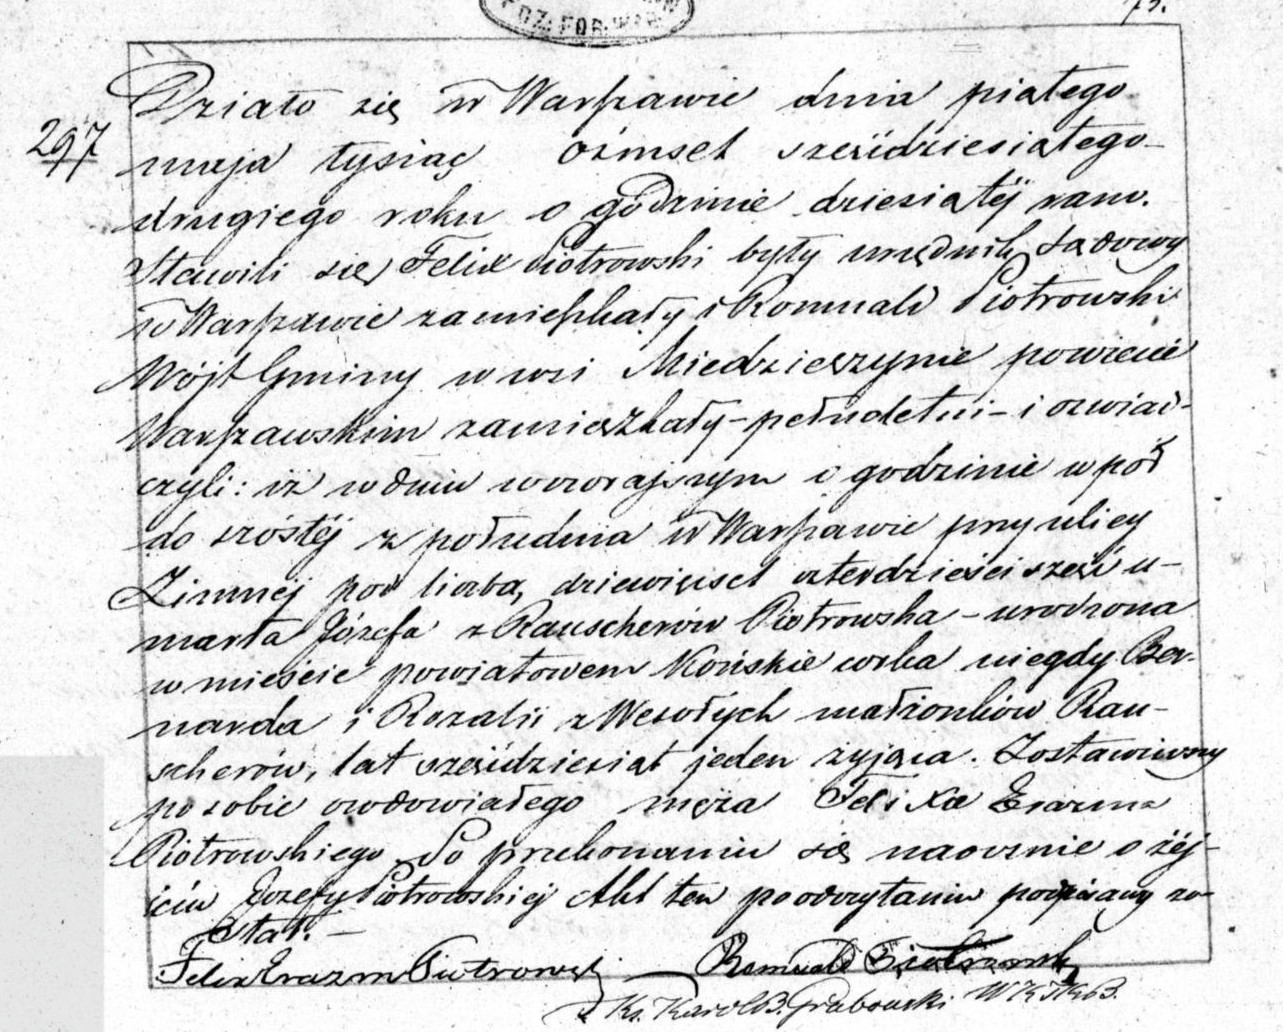 73.
297
Działo się w Warszawie dnia piątego
maja tysiąc ośmset sześćdziesiątego
drugiego roku o godzinie dziesiątéj rano.
Stawili się Felix Piotrowski były urzędnik Sądowy
w Warszawie zamieszkały i Romuald Piotrowski
Wójt Gminy w wsi Miedzieszynie powiecie
Warszawskim zamieszkały – pełnoletni – i oswiad-
czyli: iż w dniu wczorajszym o godzinie w pół
do szóstéj z południa w Warszawie przy ulicy
Zimnéj pod liczbą dziewięćset czterdzieści sześć u-
marła Józefa z Rauscherów Piotrowska – urodzona
w mieście powiatowem Końskie córka niegdy Ber-
narda i Rozalii z Wesołych małżonków Rau-
scherów, lat sześćdziesiąt jeden żyjąca. Zostawiwszy
po sobie owdowiałego męża Felixa Erazma
Piotrowskiego. Po przekonaniu się naocznie o zéj-
ściu Józefy Piotrowskiéj Akt ten po odczytaniu podpisany zo-
stał. –
Felix Erazm Piotrowski Romuald Piotrowski
Ks. Karol B. Grabowski